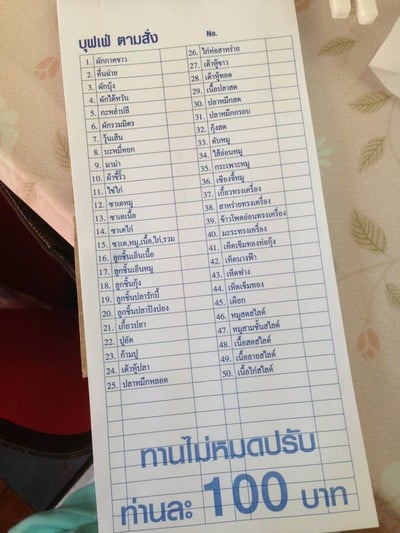 บุฟเฟ่ ตามสั่ง
No.
1. ผักกาดขาว
2. ตื้นฉ่าย
3. ผักบุ้ง
4. ผักไต้หวัน
5. กะหล่ำปลี
6. ผักรวมมิตร
7. วุ้นเส้น
8. บะหมี่หยก
9. มาม่า
10. ผ้าขี้ริ้ว
11. ไข่ไก่
12. ซาเตหมู
13. ซาเตเนื้อ
14. ซาเตไก่
15. ซาเต,หมู,เนื้อ,ไก่,รวม
16. ลูกชิ้นเอ็นเนื้อ
17. ลูกชิ้นเอ็นหมู
18. ลูกชิ้นกุ้ง
19. ลูกชิ้นปลารักบี้
20. ลูกชิ้นปลาปิงปอง
21. เกี้ยวปลา
22. ปูอัด
23. ก้ามปู
24. เต้าหู้ปลา
25. ปลาหมึกหลอด
26. ไก่ห่อสาหร่าย
27. เต้าหู้ขาว
28. เต้าหู้ทอด
29. เนื้อปลาสด
30. ปลาหมึกสด
31. ปลาหมึกกรอบ
32. กุ้งสด
33. ตับหมู
34. ไส้อ่อนหมู
35. กระเพาะหมู
36. เซี่ยงจี้หมู
37. เกี้ยวทรงเครื่อง
38. สาหร่ายทรงเครื่อง
39. ข้าวโพดอ่อนทรงเครื่อง
40. มะระทรงเครื่อง
41. เห็ดเข็มทองห่อกุ้ง
42. เห็ดนางฟ้า
43. เห็ดฟาง
44. เห็ดเข็มทอง
45. เผือก
46. หมูสดสไลด์
47. หมูสามชั้นสไลด์
48. เนื้อสดสไลด์
49. เนื้อลายสไลด์
50. เนื้อไก่สไลด์
ทานไม่หมดปรับ
ท่านละ 100 บาท